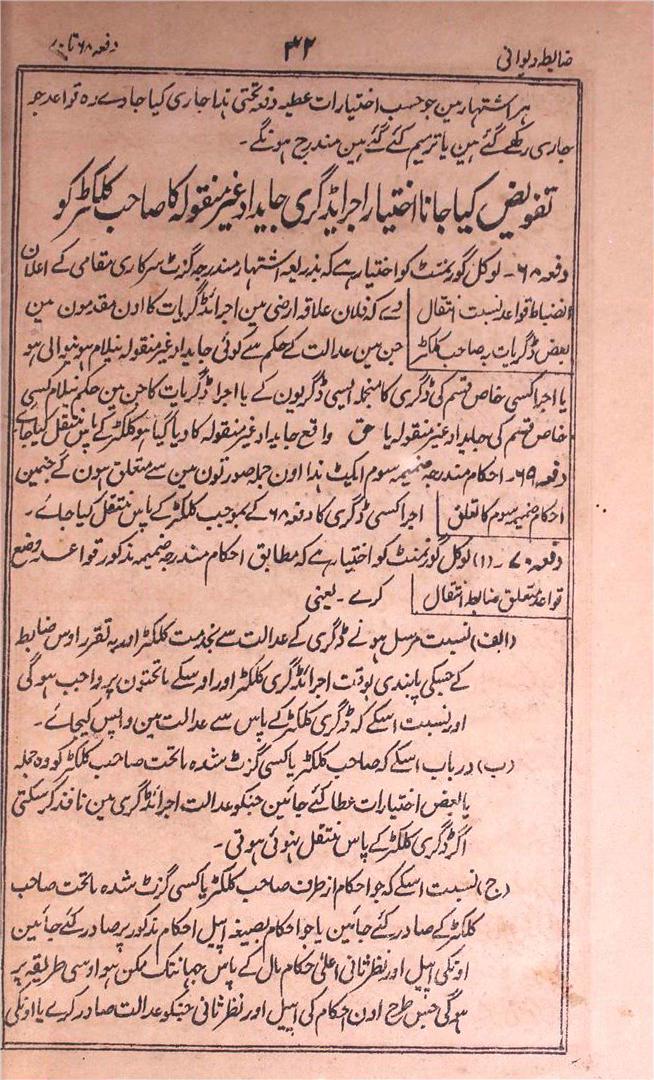 ضابطہ دیوانی ۳۲ دفعہ ۶۸ تا ۷۰
ہر اشتہار مین جو حسب اختیارات عطیہ دفعہ تحتی ہذا جاری کیا جاوے وہ قواعد جو
جاری رکھے گئے ہین یا ترمیم کئے گئے ہین مندرج ہونگے۔
تفویض کیا جانا اختیار اجرایڈگری جایداد غیر منقولہ کا صاحب کلکٹر کو
دفعہ ۶۸۔ لوکل گورنمنٹ کو اختیار ہے کہ بذریعہ اشتہار مندرجہ گزٹ سرکاری مقامی کے اعلان
انضباط قواعد نسبت انتقال دے کہ فلان علاقہ ارضی مین اجرائڈگریات کا اون مقدمون مین
بعض ڈگریات بہ صاحب کلکٹر جن مین عدالت کے حکم سے کوئی جایداد غیر منقولہ نیلام ہونیوالی ہو
یا اجرا کسی خاص قسم کی ڈگری کا منجملہ ایسی ڈگریون کے یا اجرا ڈگریات کا جن مین حکم نیلام کسی
خاص قسم کی جایداد غیر منقولہ یا حق واقع جایداد غیر منقولہ کا دیا گیا ہو کلکٹر کے پاس منتقل کیا جائے
دفعہ ۶۹۔ احکام مندرجہ ضمیمہ سوم ایکٹ ہذا اون جملہ صورتون مین سے متعلق ہون گے جنمین
احکام ضمیمہ سوم کا تعلق اجرا کسی ڈگری کا دفعہ ۶۸ کے بموجب کلکٹر کے پاس منتقل کیا جائے۔
دفعہ ۷۰۔ (۱) لوکل گورنمنٹ کو اختیار ہے کہ مطابق احکام مندرجہ ضمیمہ مذکور قواعد وضع
قواعد متعلق ضابطہ انتقال کرے۔ یعنی
(الف) نسبت مرسل ہونے ڈگری کے عدالت سے بخدمت کلکٹر اور بہ تقرر اوس ضابطہ
کے جسکی پابندی بوقت اجرائڈگری کلکٹر اور اوسکے ماتحتون پر واجب ہوگی
اور نسبت اسکے کہ ڈگری کلکٹر کے پاس سے عدالت مین واپس کیجائے۔
(ب) در باب اسکے کہ صاحب کلکٹر یا کسی گزٹ شدہ ماتحت صاحب کلکٹر کو وہ جملہ
یا بعض اختیارات عطا کئے جائین جنکو عدالت اجرائڈگری مین نافذ کر سکتی
اگر ڈگری کلکٹر کے پاس منتقل نہوئی ہوتی۔
(ج) نسبت اسکے کہ جو احکام از طرف صاحب کلکٹر یا کسی گزٹ شدہ ماتحت صاحب
کلکٹر کے صادر کئے جائین یا جو احکام بصیغہ اپیل احکام مذکور پر صادر کئے جائین
اونکی اپیل اور نظرثانی اعلیٰ حکام مال کے پاس جہانتک ممکن ہو اوسی طریقہ پر
ہوگی جس طرح اون احکام کی اپیل اور نظرثانی جنکو عدالت صادر کرے یا اونکی